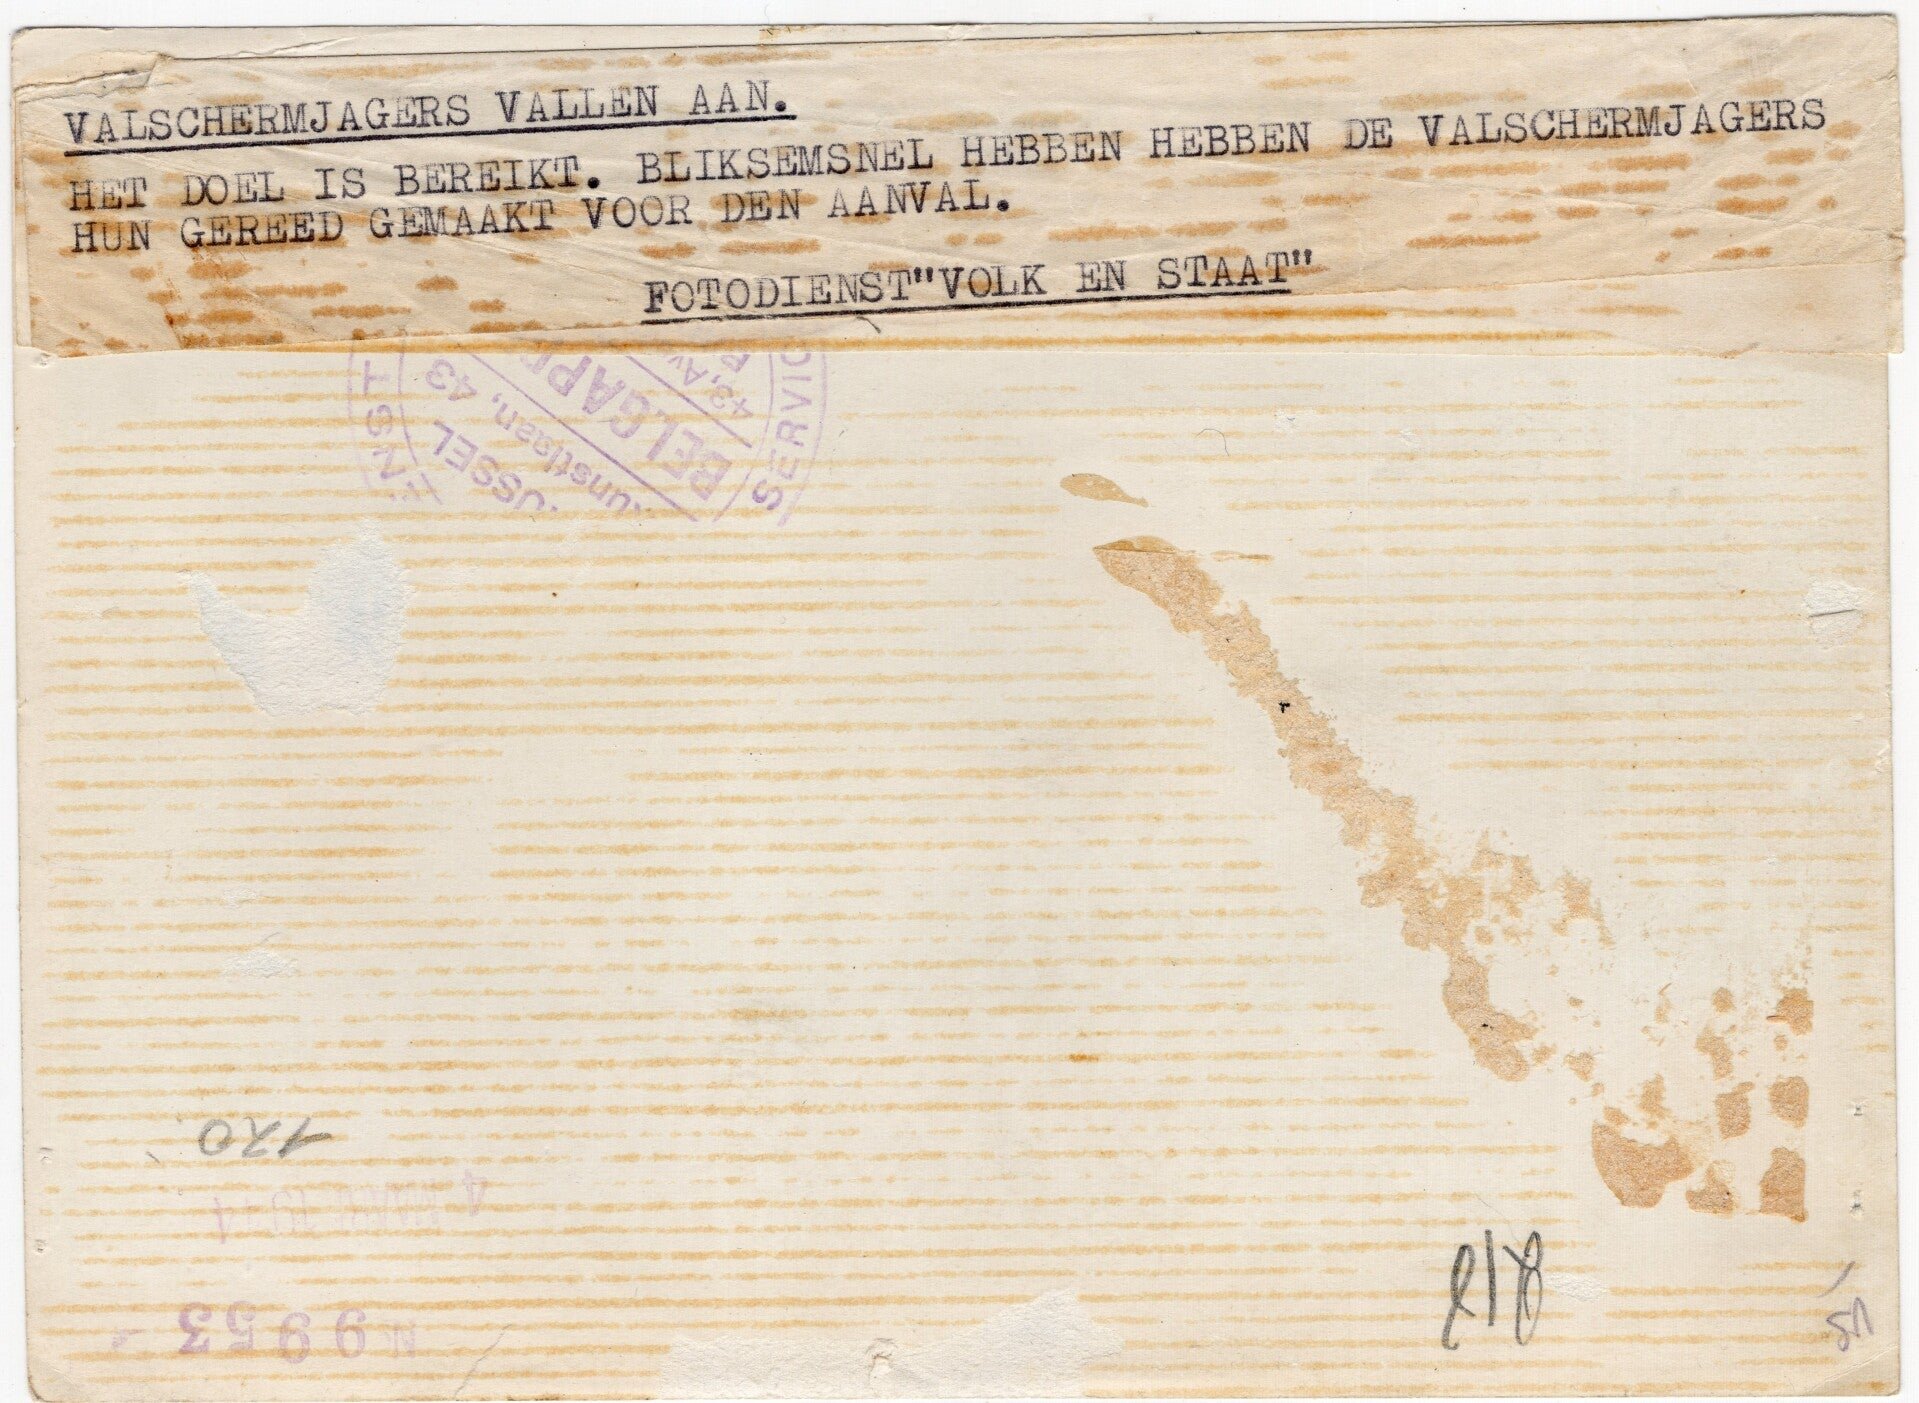 VALSCHERMJAGERS VALLEN AAN.
HET DOEL IS BEREIKT. BLIKSEMSNEL HEBBEN HEBBEN DE VALSCHERMJAGERS
HUN GEREED GEMAAKT VOOR DEN AANVAL.
FOTODIENST"VOLK EN STAAT"
SERVIC
43, Av
BELGAP
unstlaan, 43
USSEL
ENST
120
4 MAR 1944
N 9953